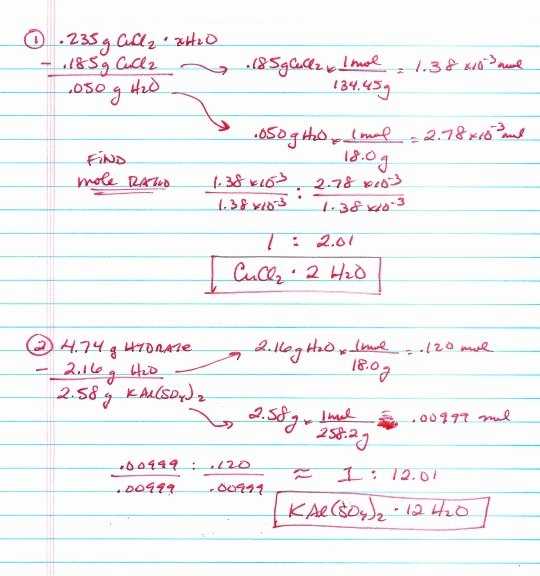 ① .235g CuCl₂ · xH₂O
- .185g CuCl₂ → .185g CuCl₂ × 1mol / 134.45g = 1.38 ×10⁻³ mol
.050 g H₂O → .050g H₂O × 1mol / 18.0g = 2.78 ×10⁻³ mol
FIND
mole RATIO
1.38 ×10⁻³ / 1.38 ×10⁻³ : 2.78 ×10⁻³ / 1.38 ×10⁻³
1 : 2.01
CuCl₂ · 2 H₂O
② 4.74 g HYDRATE
- 2.16 g H₂O → 2.16g H₂O × 1mol / 18.0g = .120 mol
2.58 g KAl(SO₄)₂ → 2.58g × 1mol / 258.2g = .00999 mol
.00999 / .00999 : .120 / .00999 ≈ 1 : 12.01
KAl(SO₄)₂ · 12 H₂O